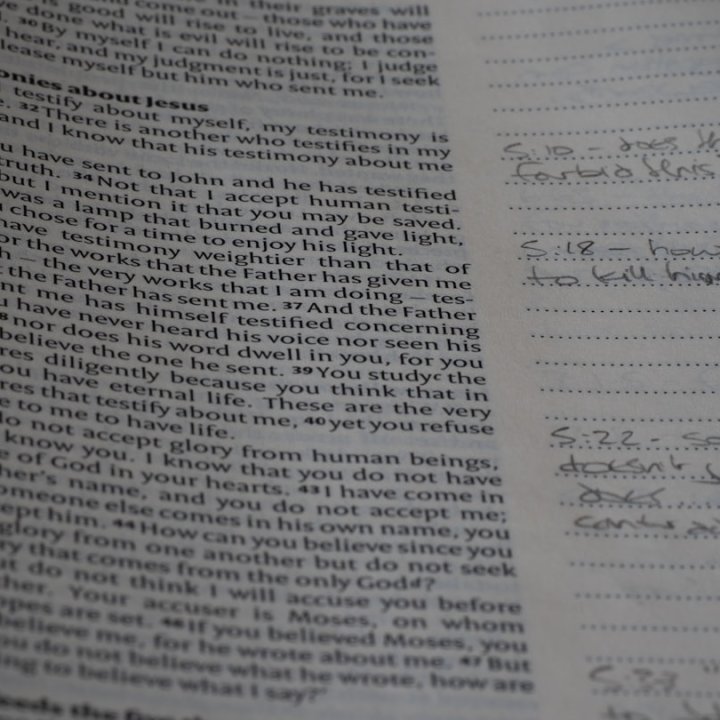 in their graves will
come out – those who have
is good will rise to live, and those
done what is evil will rise to be con-
30 By myself I can do nothing; I judge
hear, and my judgment is just, for I seek
please myself but him who sent me.
onies about Jesus
testify about myself, my testimony is
32 There is another who testifies in my
and I know that his testimony about me
u have sent to John and he has testified
truth. 34 Not that I accept human testi-
but I mention it that you may be saved.
was a lamp that burned and gave light,
chose for a time to enjoy his light.
have testimony weightier than that of
or the works that the Father has given me
h – the very works that I am doing – tes-
the Father has sent me. 37 And the Father
nt me has himself testified concerning
u have never heard his voice nor seen his
8 nor does his word dwell in you, for you
believe the one he sent. 39 You study c the
res diligently because you think that in
ou have eternal life. These are the very
res that testify about me, 40 yet you refuse
e to me to have life.
do not accept glory from human beings,
know you. I know that you do not have
e of God in your hearts. 43 I have come in
her's name, and you do not accept me;
omeone else comes in his own name, you
ept him. 44 How can you believe since you
glory from one another but do not seek
ry that comes from the only God d?
ut do not think I will accuse you before
ther. Your accuser is Moses, on whom
opes are set. 46 If you believed Moses, you
believe me, for he wrote about me. 47 But
ou do not believe what he wrote, how are
ing to believe what I say?'
eeds the
5:10 – does th
forbid this
5:18 – how
to kill him
5:22 – so
doesn't
does